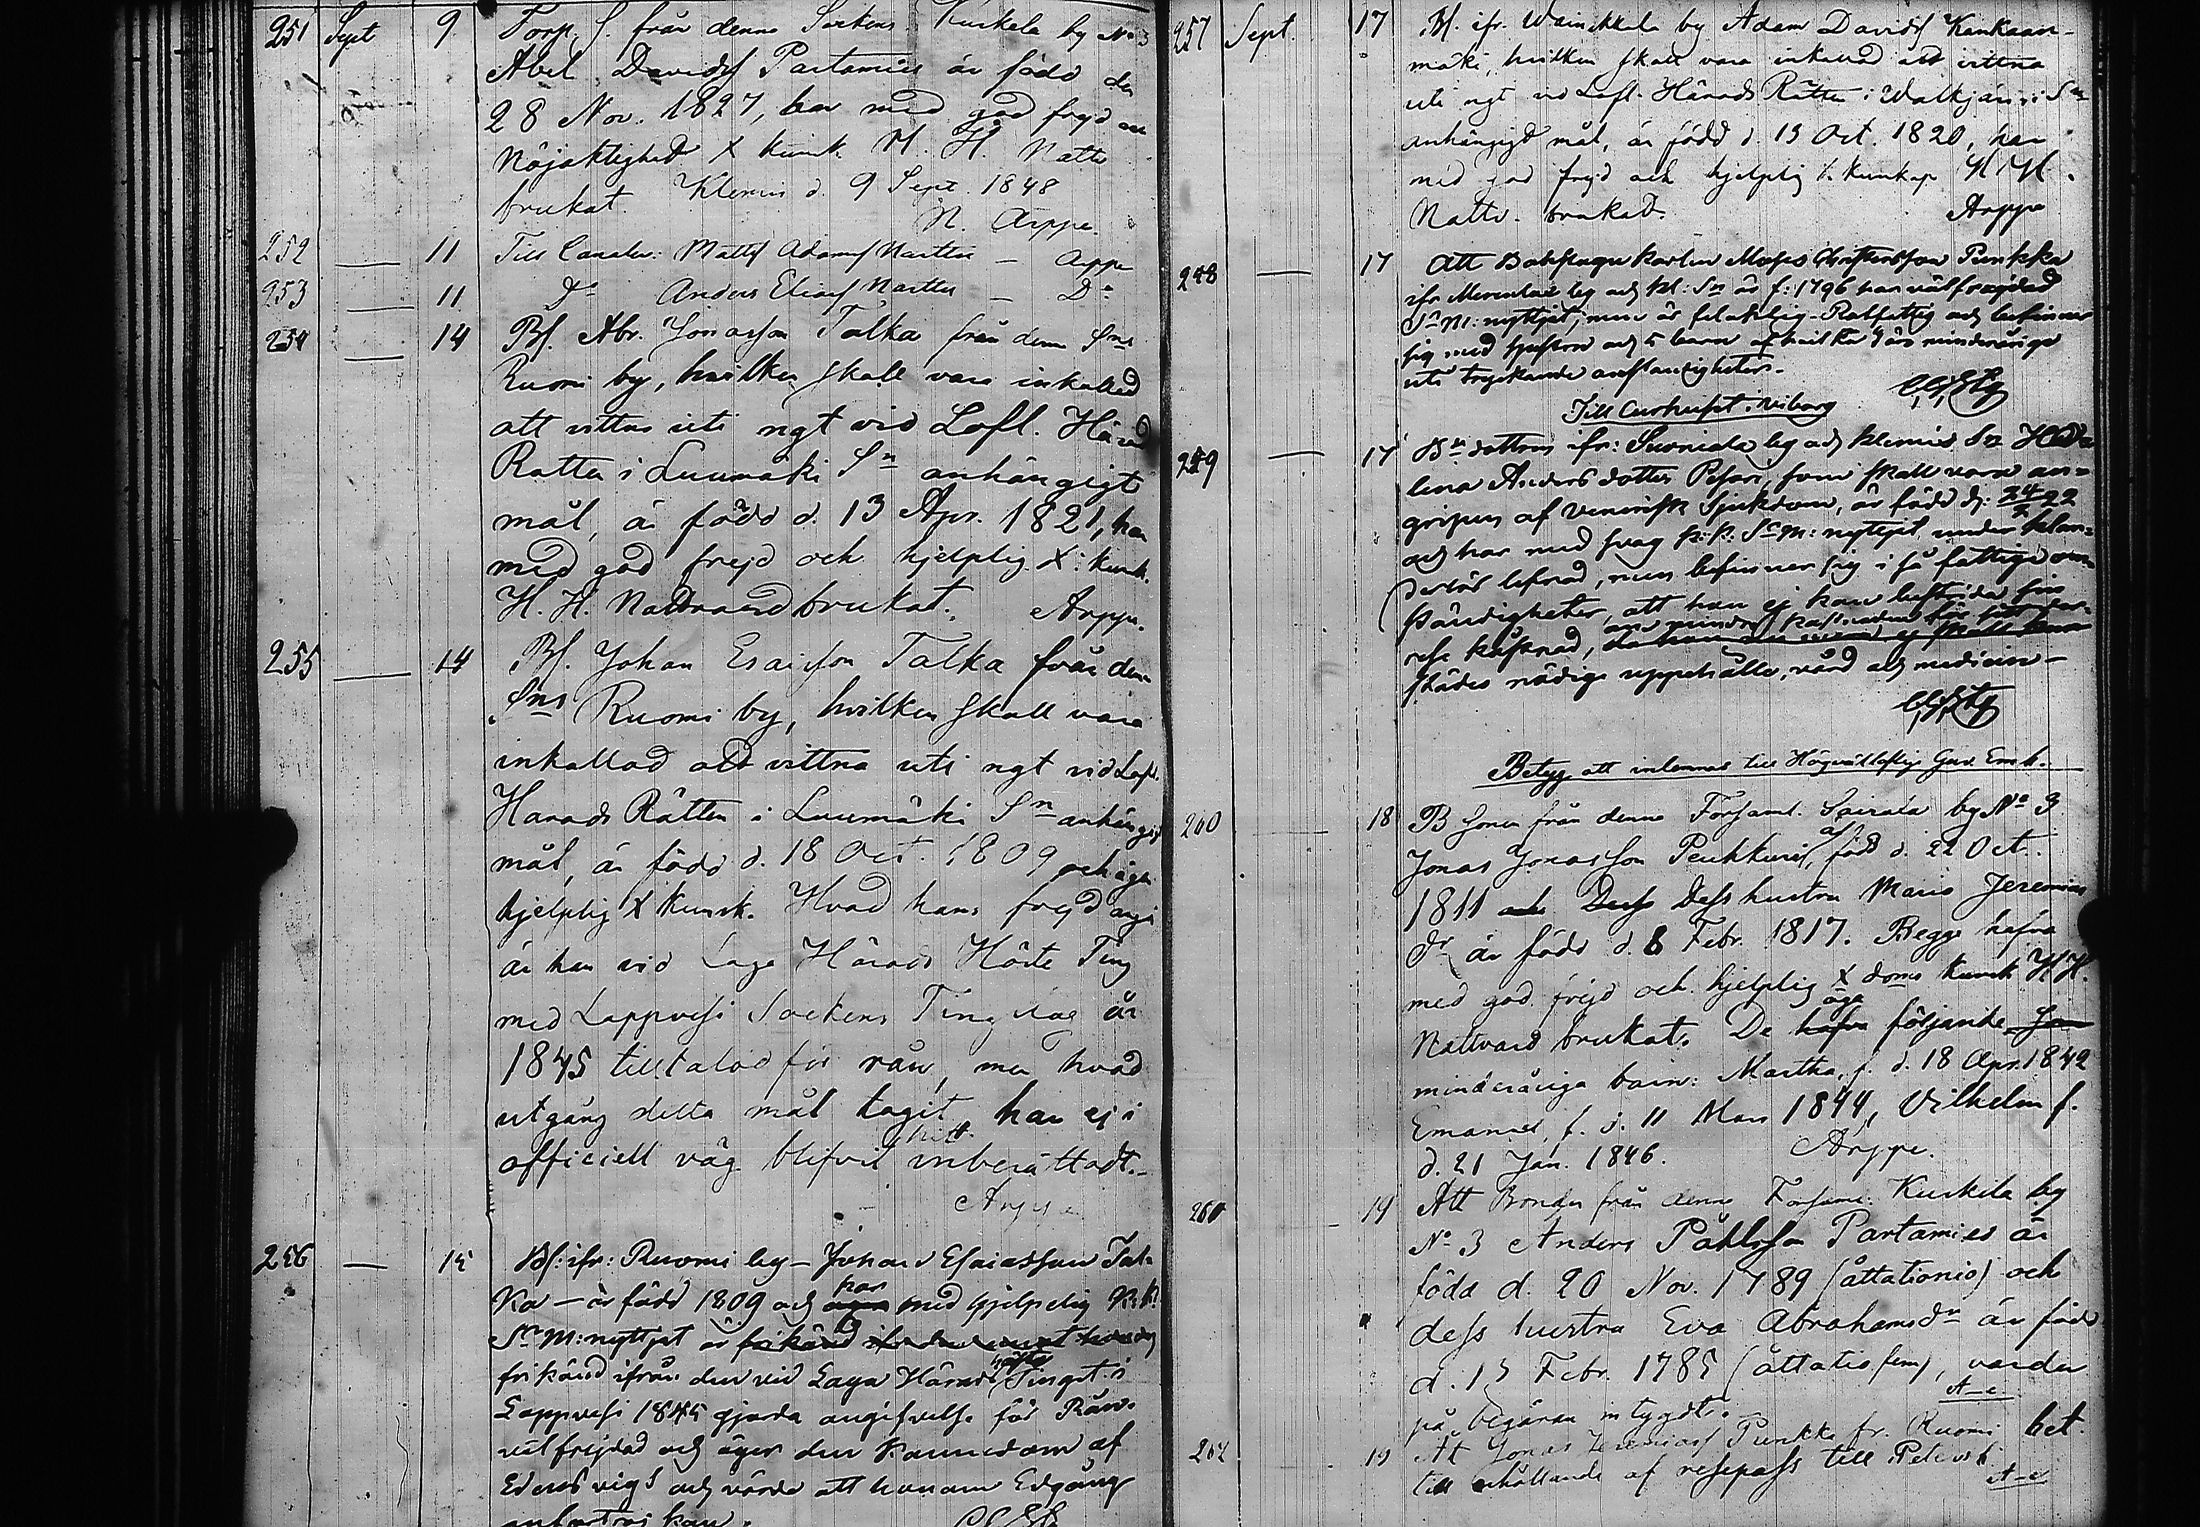 251 Sept 9. Torp. S. från denne Sockens Kuskela by No 3
Abel Davidss Partamies är född den
28 Nov. 1827, har med god frejd och
Nöjaktighet X kunsk. H. H. Nattv
brukat. Klemis d. 9 Sept. 1848
N. Arppe.
252 — 11 Till Canalen: Matts Adamss Narttu — Arppe
253 — 11 Do Anders Eliass Narttu — Do
254 — 14 Bs. Abr. Jonasson Talka från denne Sns
Ruomi by, hvilken skall vara inkallad
att vittna uti ngt vid Lofl. Härad
Rätten i Luumäki Sn anhängigt
mål, är född d. 13 Apr. 1821, har
med god frejd och hjelplig X: kunsk.
H. H. Nattvard brukat. Arppe.
255 — 14 Bs. Johan Esaisson Talka från denne
Sns Ruomi by, hvilken skall vara
inkallad att vittna uti ngt vid Lofl.
Harads Rätten i Luumäki Sn anhängigt
mål, är född d. 18 Oct. 1809 och äger
hjelplig X kunsk. Hvad hans frejd angår
är han vid Laga Härads Höste Ting
med Lappvesi Sockens Tingslag år
1845 tilltalad för rån, men hvad
utgång detta mål tagit, har ej i
officiell väg blifvit hitt inberättadt.
Arppe
256 — 15 Bs: ifr: Ruomi by — Johan Esaiasson Tal-
ka — är född 1809 och har med hjelplig K:k:
S:M: nyttjat är
frikänd ifrån den vid Laga Härads höste Tinget i
Lappvesi 1845 gjorda angifvelse för Rån.
välfrejdad och äger den kännedom af
Edens vigt och värde att honom Edgång
anförtros kan.
257 Sept. 17 Bs. ifr. Wainikkala by Adam Davidss Kankaan-
mäki, hvilken skall vara inkallad att vittna
uti ngt vid Lofl. Härads Rätten i Walkjärvi Sn
anhängigt mål, är född d. 13 Oct. 1820, har
med god frejd och hjelplig X. kunskap H. H.
Nattv. brukat. Arppe
258 — 17 Att Backstugu karlen Moses Christersson Punkka
ifr by och Kl: Sn är f: 1796 har välfrejdad
S: M: nyttjat; men är Utfattig och befinner
sig med hustru och 5 barn af hvilka 4 äro minderåriga
uti tryckande omständigheter.
Till Curhuset i Viborg
259 — 17 Bn dottren ifr: Suomela by och Klemis Sn Hede
lena Anders dotter Pesari, som skall vara an-
gripen af venerisk Sjukdom, är född d. 22
och har med svag K: k. S: M: nyttjat, under klan-
derlös lefnad, men befinner sig i så fattiga om-
ständigheter, att hon ej kan bestrida sin
rese kostnad,
städes nödiga uppehälle, vård och medicin —
Betyg att inlemnas till Högvällofliga Guv. Emb.
260 18 B Sonen från denne Forsaml. Spirala by No 3
Jonas Jonasson Penkkuri, född d. 22 Oct.
1811 Dess hustru Maria Jeremias
dr är född d. 6 Febr. 1817. Begge hafva
med god frejd och hjelplig X doms kunsk H. H.
Nattvard brukat. De äga hafva följande
minderåriga barn: Martha, f. d. 18 Apr. 1842
Emanuel, f. d. 11 Mars 1844, Vilhelm f.
d. 21 Jan. 1846. Arppe.
261 19 Att Bonden från denne Forsaml. Kuskela by
No 3 Anders Påhlsson Partamies är
född d. 20 Nov. 1789 (åttationio) och
dess hustru Eva Abrahamsdr är född
d. 15 Febr. 1785 (åttatio fem), varder
på begäran intygdt. A—e
262 19 Åt Jonas Jeremiass Punkka fr. Ruomi bet.
till erhållande af resepass till Petersb. A—e